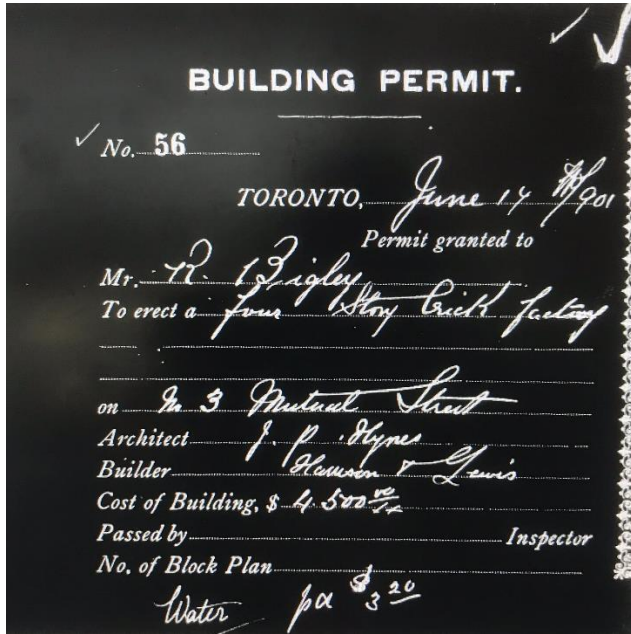 BUILDING PERMIT.
No. 56
TORONTO, June 14 1901
Permit granted to
Mr. R. Bigley
To erect a four Story brick factory
on No 3 Mutual Street
Architect J. P. Hynes
Builder Harrison & Lewis
Cost of Building, $ 4 500
Passed by Inspector
No. of Block Plan
Water pd $3 20